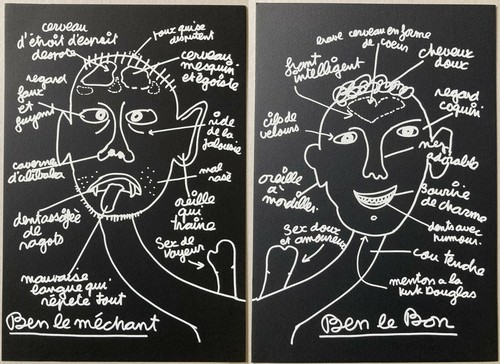 cerveau
d'étroit d'esprit
despote
poux qui se
disputent
cerveau
mesquin
et égoïste
regard
faux
et
fuyant
ride
de la
jalousie
caverne
d'alibaba
mal
rasé
dents
de
ragots
oreille
qui
traîne
Sex de
voyeur
mauvaise
langue qui
répète tout
Ben le méchant
cerveau en forme
de coeur
cheveux
doux
front
intelligent
regard
coquin
cils de
velours
nez
adorable
oreille
à
mordiller
sourire
de charme
dents avec
humour
Sex doux
et amoureux
cou tendre
menton a la
Kirk Douglas
Ben le Bon